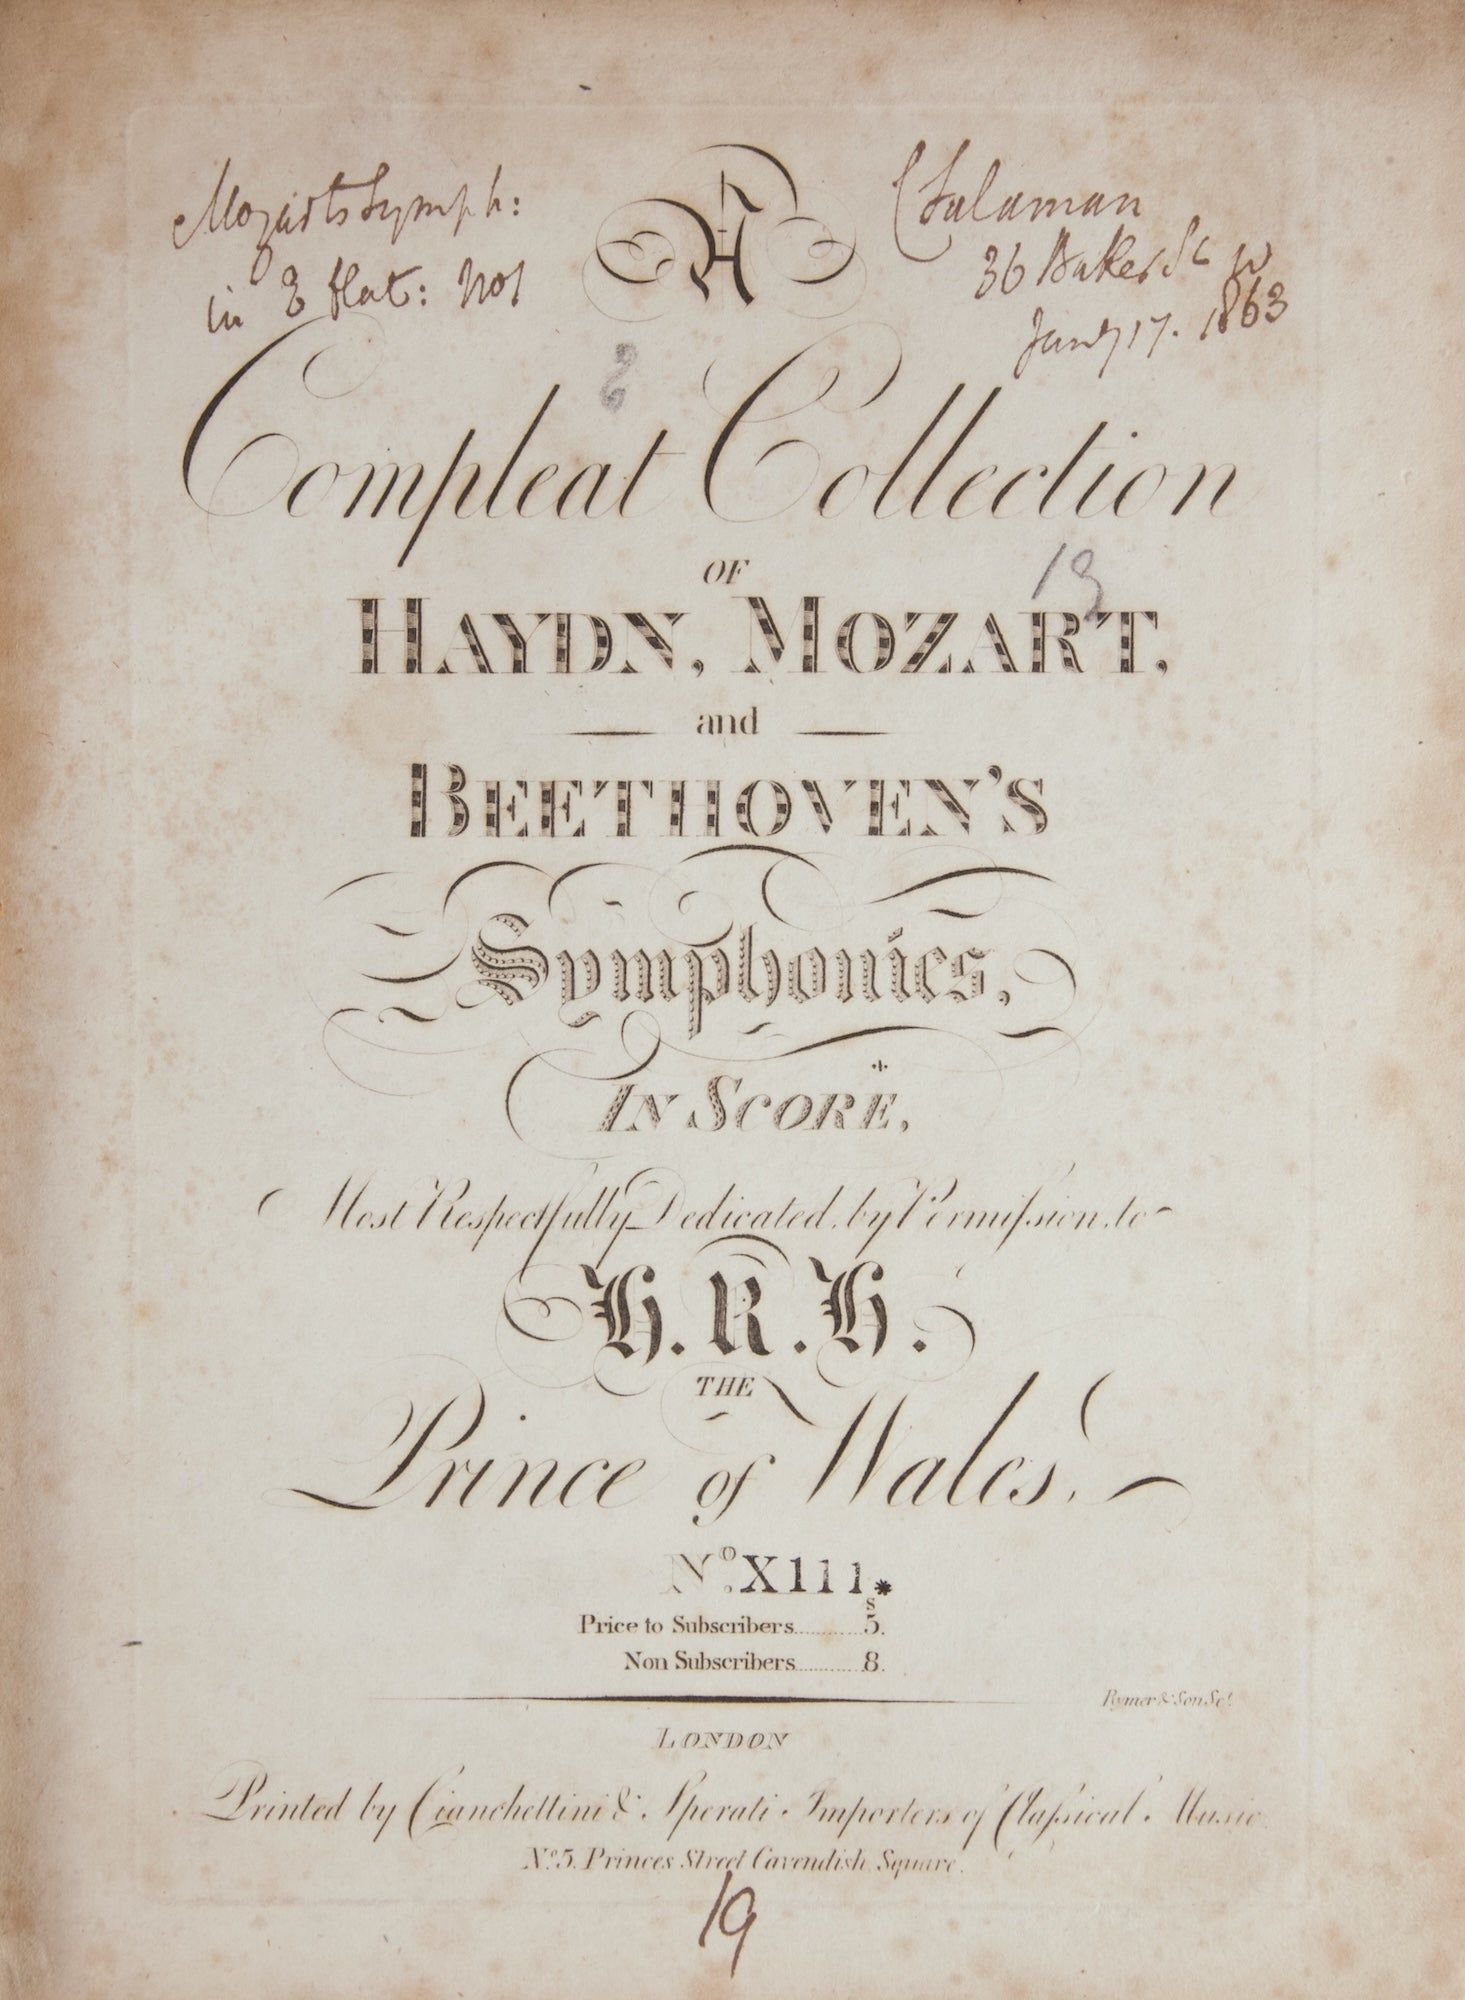 Mozarts Symph:
in E flat: No 1
C Salaman
36 Baker St W
Jany 17. 1863
A
Compleat Collection
OF
13
HAYDN, MOZART,
and
BEETHOVEN'S
Symphonies,
IN SCORE,
Most Respectfully Dedicated, by Permiſsion, to
H. R. H.
THE
Prince of Wales.
No. X111.*
Price to Subscribers............5.s
Non Subscribers............8.
Rymer & Son Sct.
LONDON
Printed by Cianchettini & Sperati Importers of Claſsical Music
No. 5. Princes Street Cavendish Square.
19